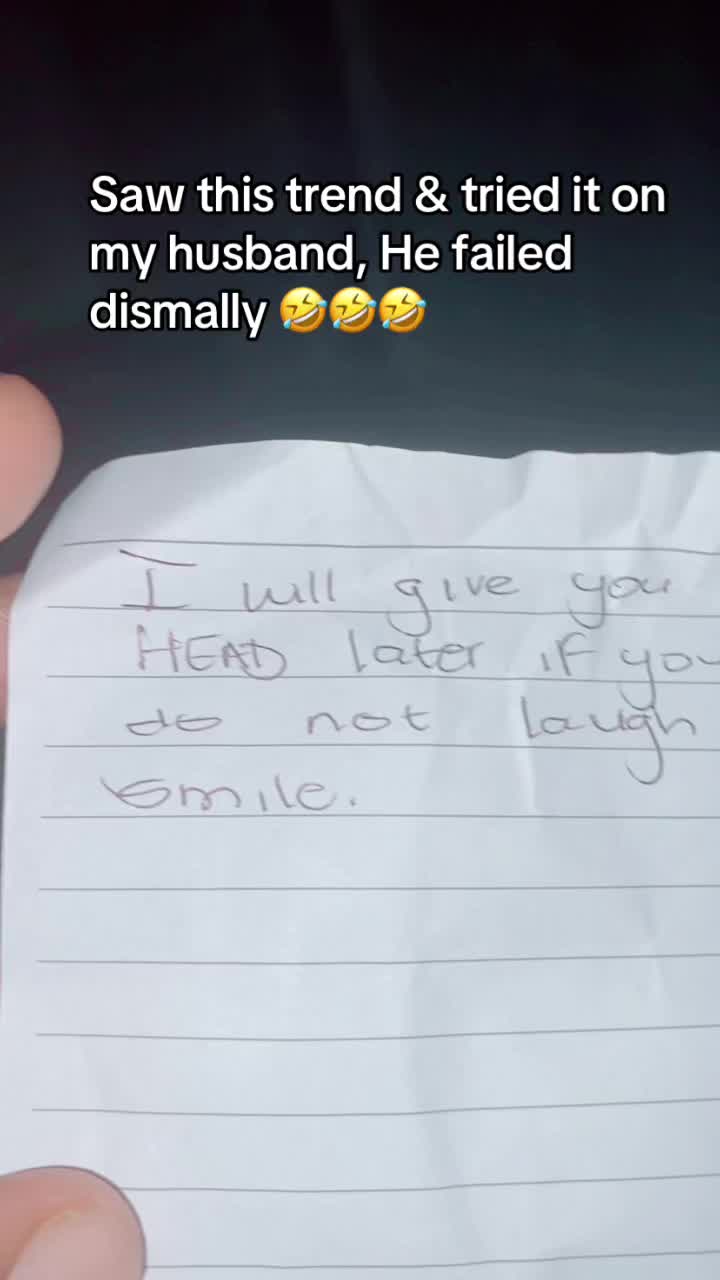 Saw this trend & tried it on
my husband, He failed
dismally 🤣🤣🤣
I will give you
HEAD later if you
do not laugh
smile.